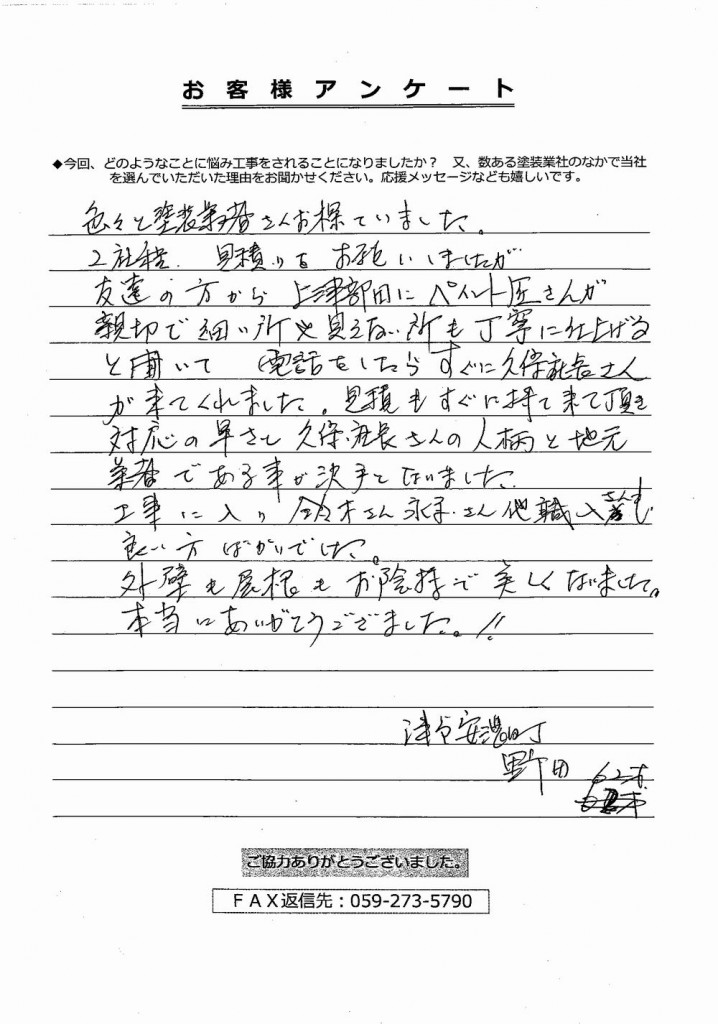 お客様アンケート
◆今回、どのようなことに悩み工事をされることになりましたか？ 又、数ある塗装業社のなかで当社
を選んでいただいた理由をお聞かせください。応援メッセージなども嬉しいです。
色々と塗装業者さんお探ていました。
2社程、見積りを お願いしましたが
友達の方から 上津部田にペイント匠さんが
親切で細い所や見えない所も丁寧に仕上げる
と聞いて 電話をしたらすぐに久保社長さん
が来てくれました。見積もすぐに持て来て頂き
対応の早さと久保社長さんの人柄と地元
業者である事が決手となりました。
工事に入り 鈴木さん 他職人さんも
良い方ばかりでした。
外壁も屋根もお陰様で美しくなりました。
本当にありがとうござました。!!
津市安濃町
野田 62才
ご協力ありがとうございました。
ＦＡＸ返信先：059-273-5790